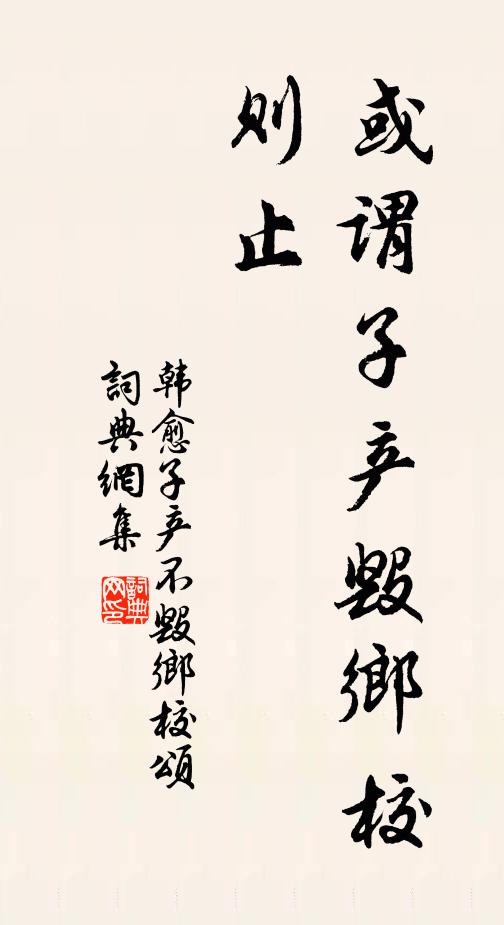 或谓子产毁鄉校
则止
韩愈子产不毁鄉校頌
詞典網集
詞典網印